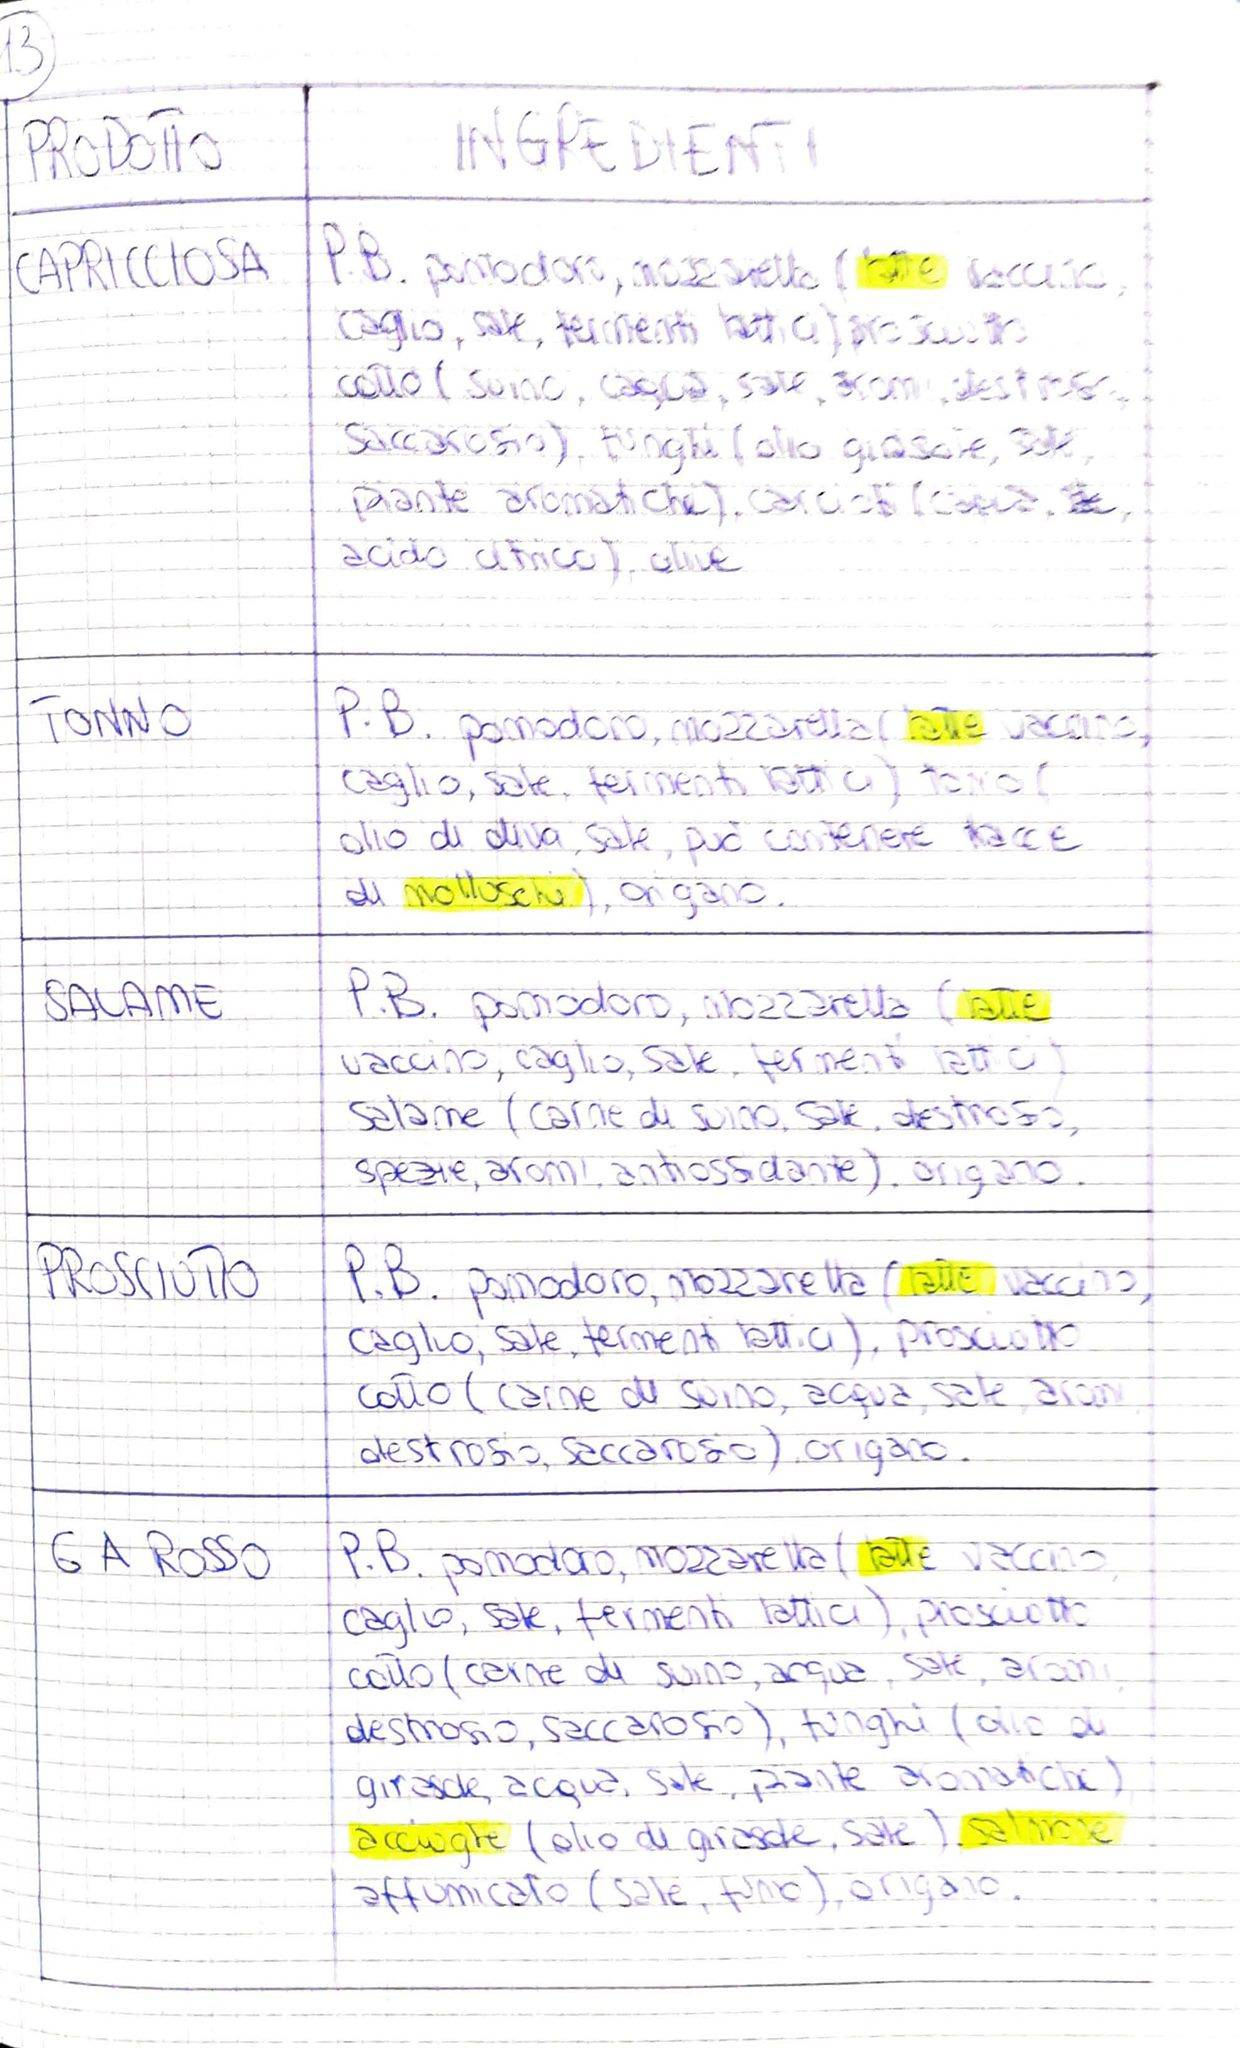 13
PRODOTTO INGREDIENTI
CAPRICCIOSA P.B. pomodoro, mozzarella (latte vaccino,
caglio, sale, fermenti lattici) prosciutto
cotto (suino, acqua, sale, aromi, destrosio,
saccarosio), funghi (olio girasole, sale,
piante aromatiche), carciofi (acqua,
acido citrico), olive
TONNO P.B. pomodoro, mozzarella (latte vaccino,
caglio, sale, fermenti lattici) tonno (
olio di oliva, sale, può contenere tracce
di molluschi), origano.
SALAME P.B. pomodoro, mozzarella (latte
vaccino, caglio, sale, fermenti lattici)
salame (carne di suino, sale, destrosio,
spezie, aromi, antiossidante), origano.
PROSCIUTTO P.B. pomodoro, mozzarella (latte vaccino,
caglio, sale, fermenti lattici), prosciutto
cotto (carne di suino, acqua, sale, aromi,
destrosio, saccarosio), origano.
G A ROSSO P.B. pomodoro, mozzarella (latte vaccino,
caglio, sale, fermenti lattici), prosciutto
cotto (carne di suino, acqua, sale, aromi,
destrosio, saccarosio), funghi (olio di
girasole, acqua, sale, piante aromatiche)
acciughe (olio di girasole, sale), salmone
affumicato (sale, fumo), origano.